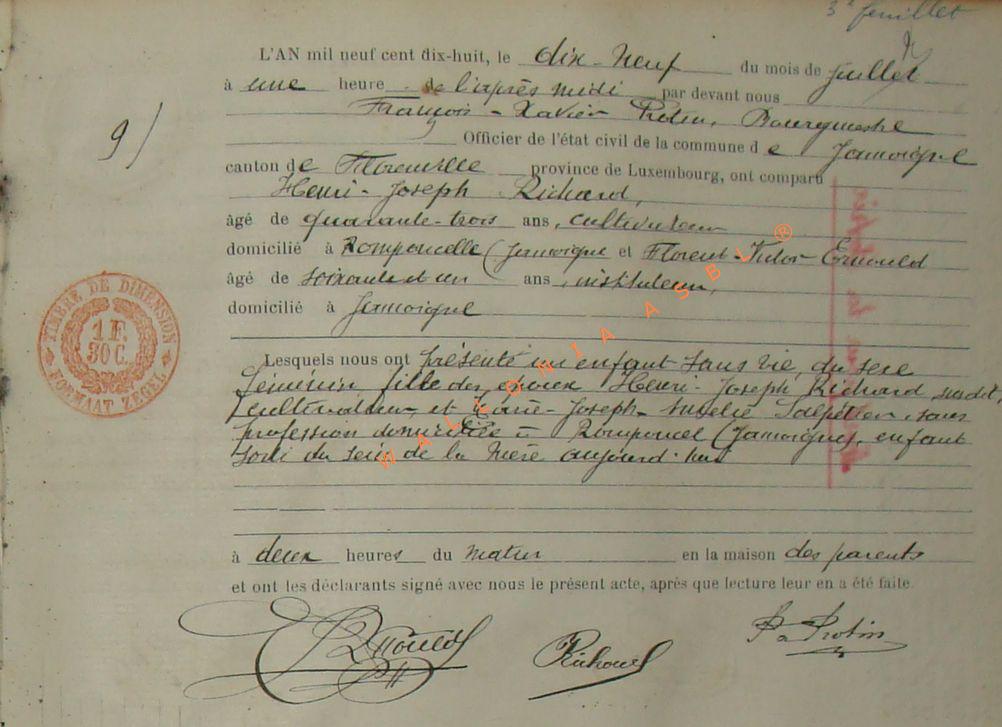 3e feuillet
9/
L'AN mil neuf cent dix-huit, le dix-neuf du mois de juillet
à une heure de l'après midi par devant nous
François-Xavier Probin, Bourgmestre
Officier de l'état civil de la commune de Jamoigne
canton de Florenville province de Luxembourg, ont comparu
Henri-Joseph Richard,
âgé de quarante-trois ans, cultivateur
domicilié à Romponcelle (Jamoigne et Florent-Victor Ernould
âgé de soixante et un ans, instituteur,
domicilié à Jamoigne
Lesquels nous ont présenté un enfant sans vie, du sexe
féminin fille des époux Henri-Joseph Richard, susdit,
cultivateur, et Marie-Joseph-Amélie, sans
profession domiciliée à Romponcel (Jamoigne), enfant
sorti du sein de la mère aujourd'hui
à deux heures du matin en la maison des parents
et ont les déclarants signé avec nous le présent acte, après que lecture leur en a été faite.
Ernould Richard Probin
TIMBRE DE DIMENSION
1 F.
30 C.
FORMAAT ZEGEL
WALLONIA ASBL ®